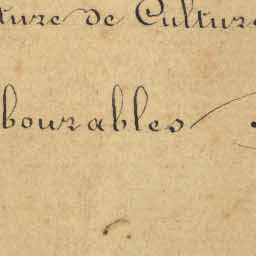 ture de Cultur
bourables